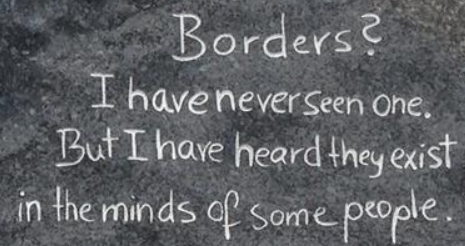 Borders?
I have never seen one.
But I have heard they exist
in the minds of some people.